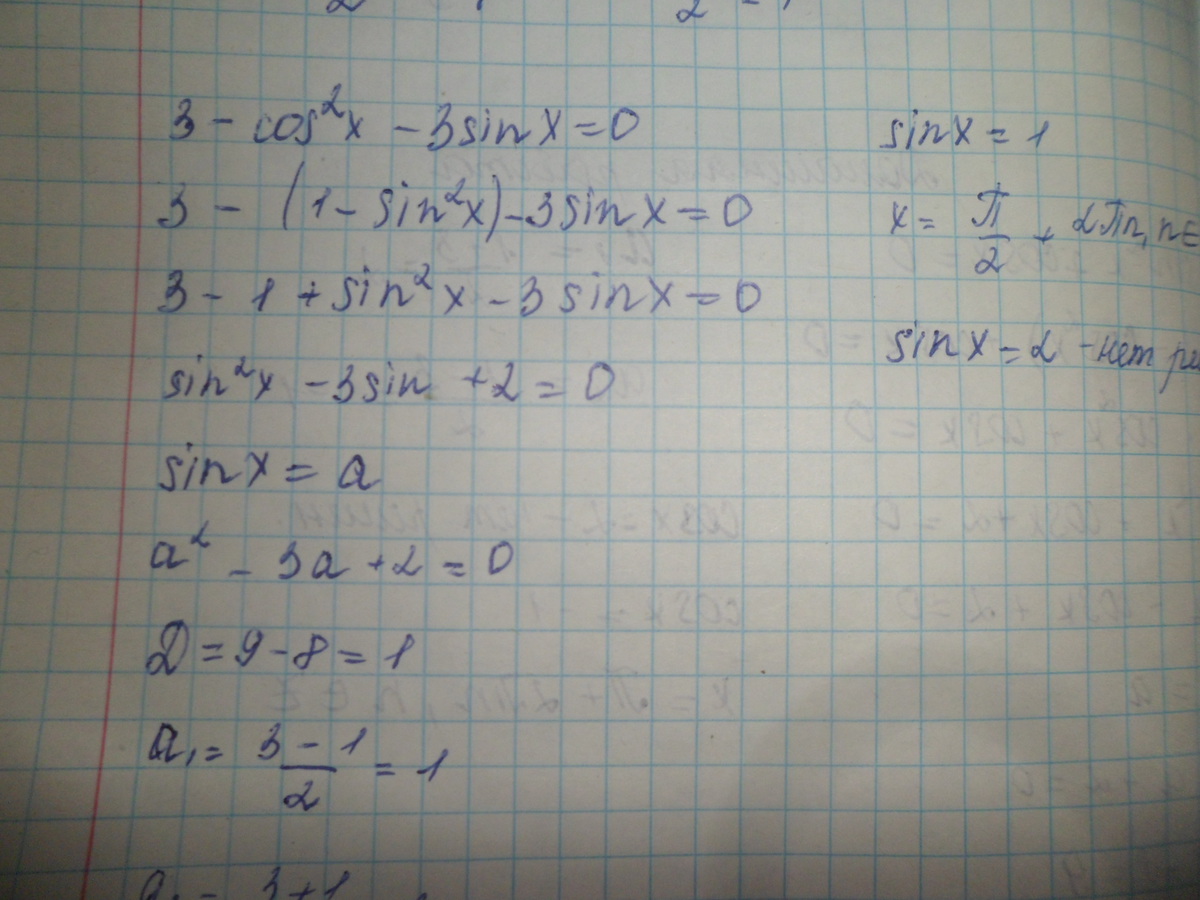 3 - cos²x - 3sinx = 0
3 - (1 - sin²x) - 3sinx = 0
3 - 1 + sin²x - 3sinx = 0
sin²x - 3sin + 2 = 0
sinx = a
a² - 3a + 2 = 0
D = 9 - 8 = 1
a₁ = (3 - 1)/2 = 1
3 + 1
sinx = 1
x = π/2 + 2πn, n ∈
sinx = 2 - нет